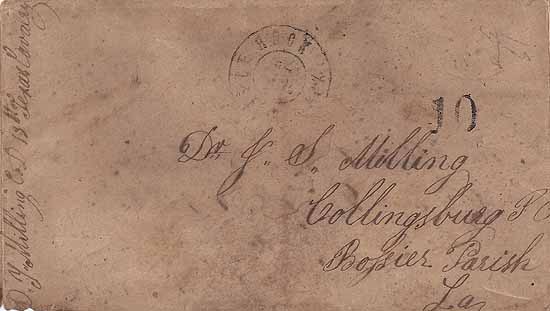 ROCK
10
Dr. J. S. Milling
Collingsburg P.
Boſsier Parish
La
Milling Co D 13th Texas Cavalry